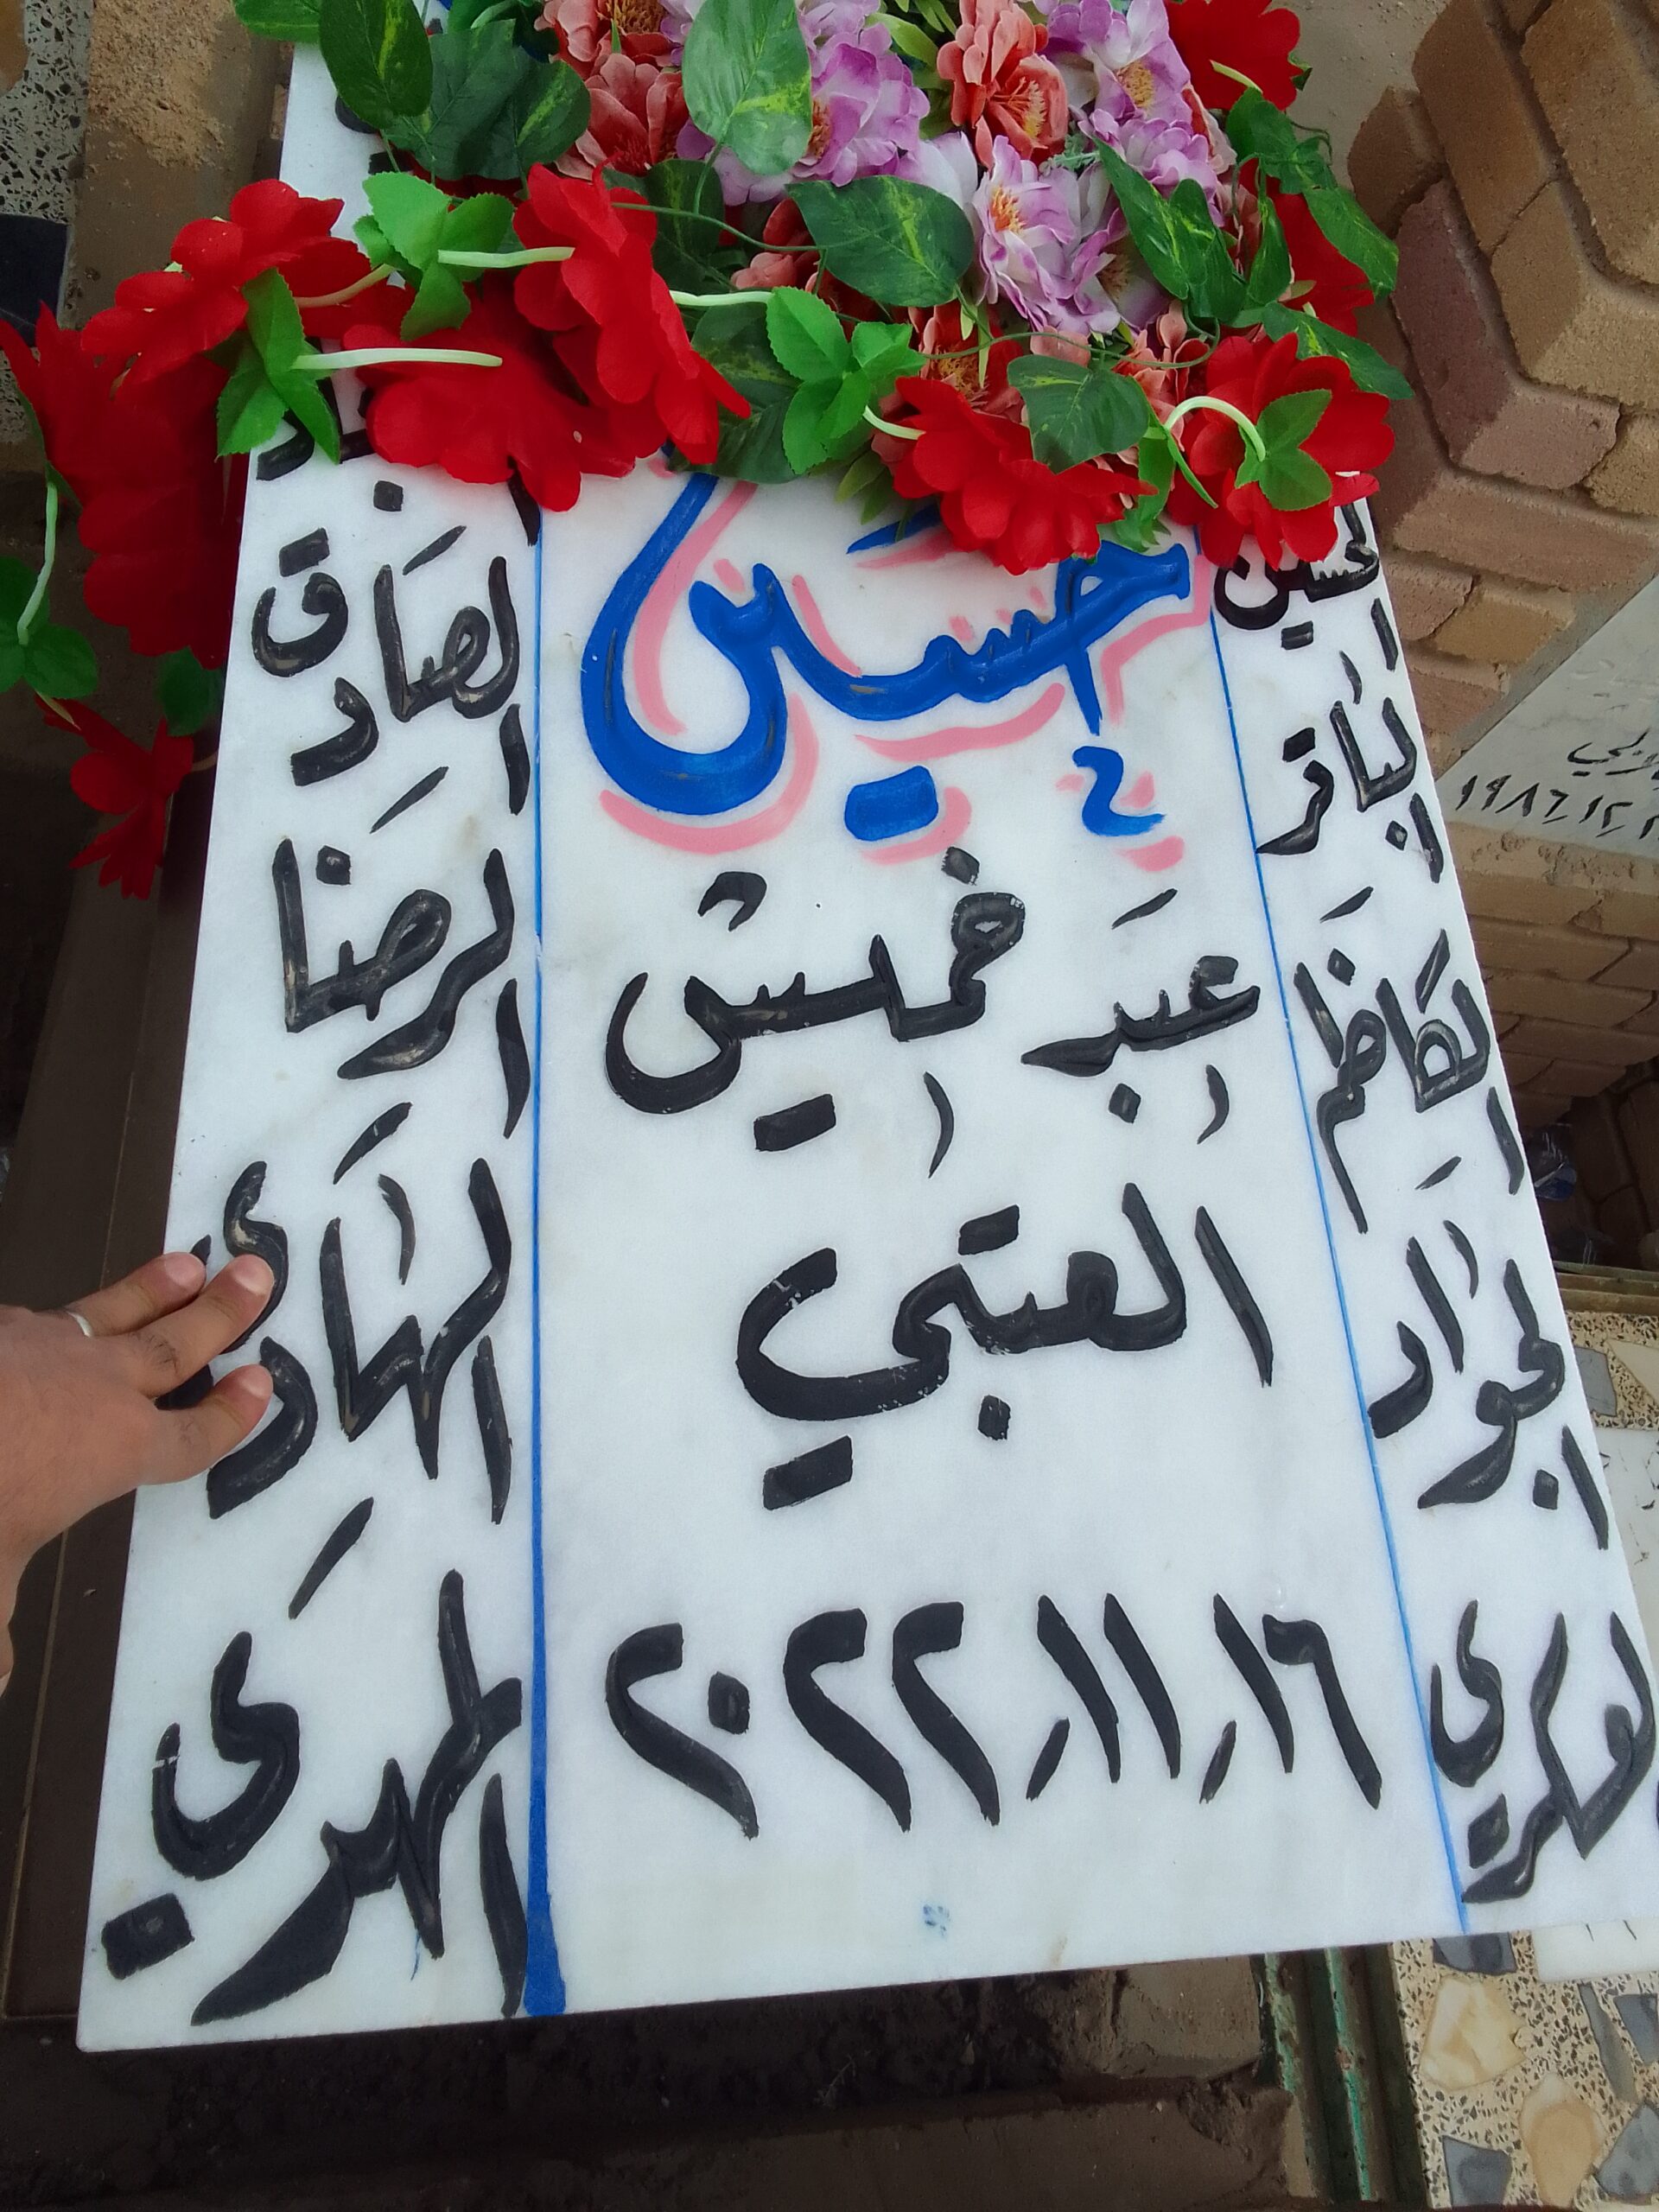 حسين
عبد خميس
العتبي
١٦/١١/٢٠٢٢
الحسين
الباقر
الكاظم
الجواد
العسكري
الصادق
الرضا
الهادي
المهدي